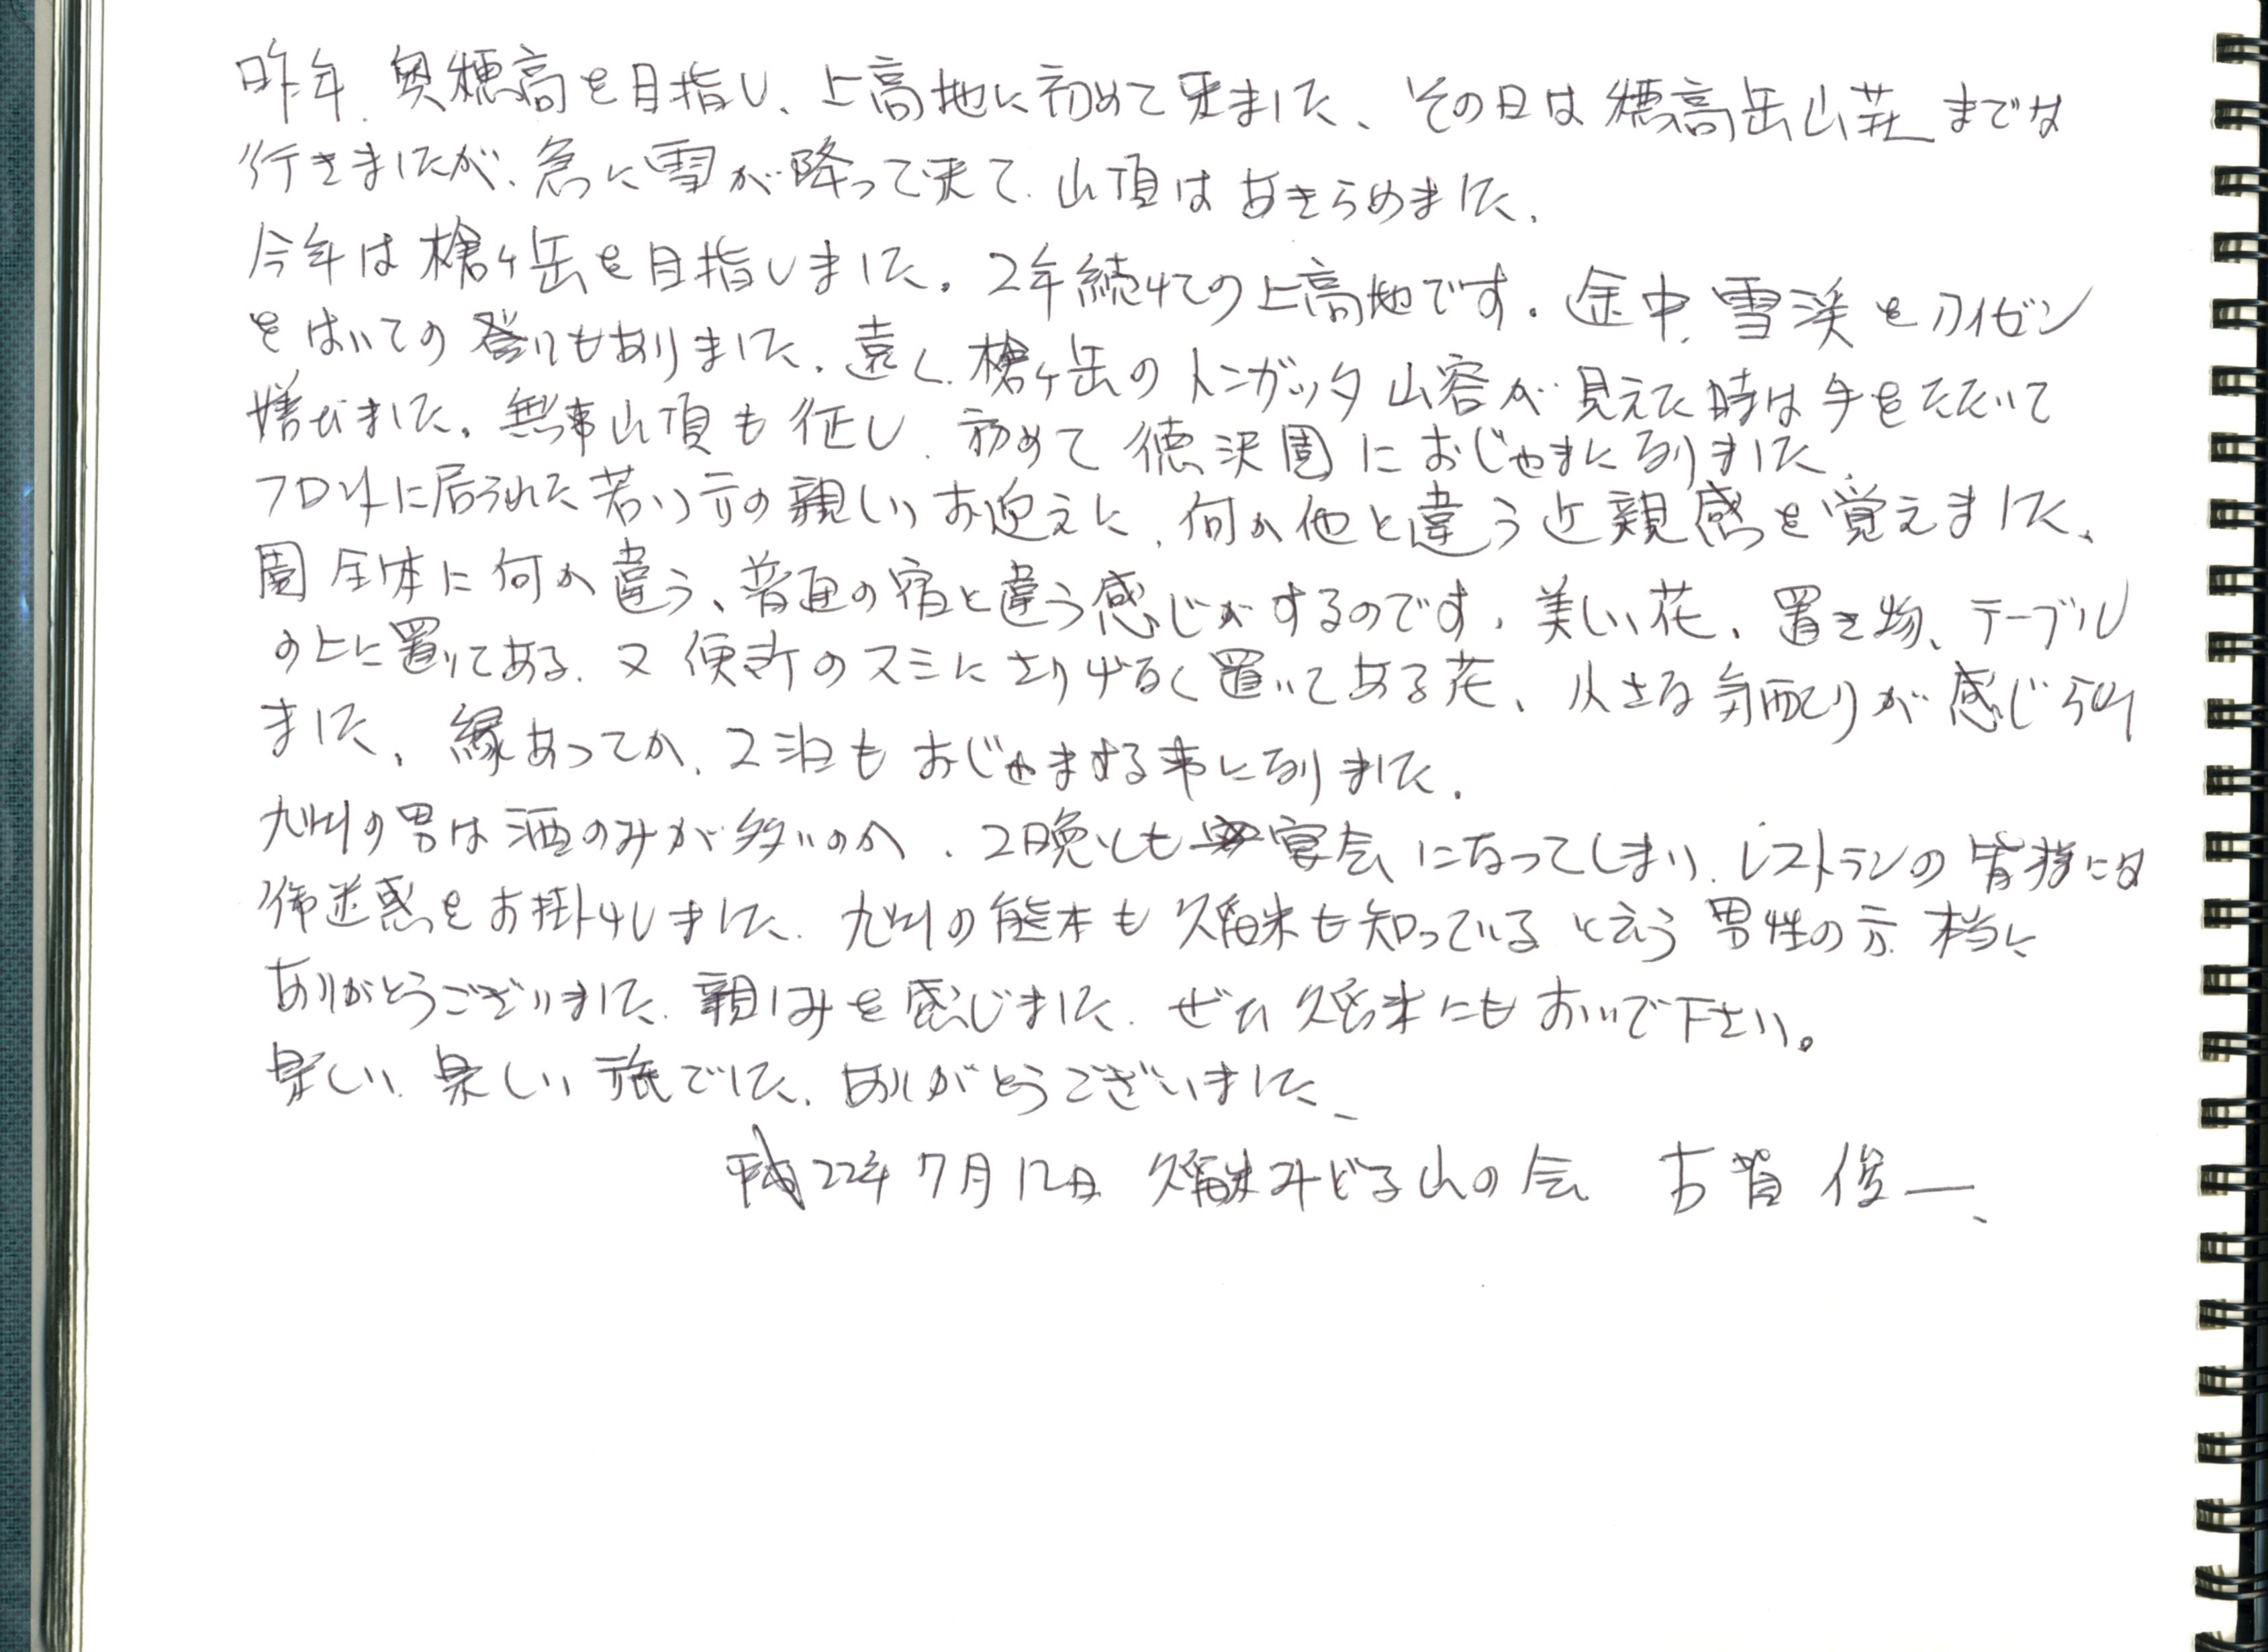 昨年、奥穂高を目指し、上高地に初めて来ました、その日は穂高岳山荘までは
行きましたが、急に雪が降って来て、山頂はあきらめました、
今年は槍ヶ岳を目指しました。2年続けての上高地です。途中、雪渓をアイゼン
をはいての登りもありました、遠く、槍ヶ岳のトンガッタ山容が見えた時は手をたたいて
嬉びました。無事山頂も征し、初めて徳沢園におじゃまになりました、
フロントに居られた若い方の親しいお迎えに、何か他と違う近親感を覚えました、
園全体に何か違う、普通の宿と違う感じがするのです、美しい花、置き物、テーブル
の上に置いてある、又便所のスミにさりげなく置いてある花、小さな気配りが感じられ
ました、縁あってか、2泊もおじゃまする事になりました、
九州の男は酒のみが多いのか、2晩とも宴会になってしまい、レストランの皆様には
御迷惑をお掛けしました、九州の熊本も久留米も知っていると云う男性の方、本当に
ありがとうございました、親しみを感じました、ぜひ久留米にもおいで下さい。
楽しい、楽しい旅でした、ありがとうございました、
平成22年7月12日 久留米みどる山の会 古賀 俊一、